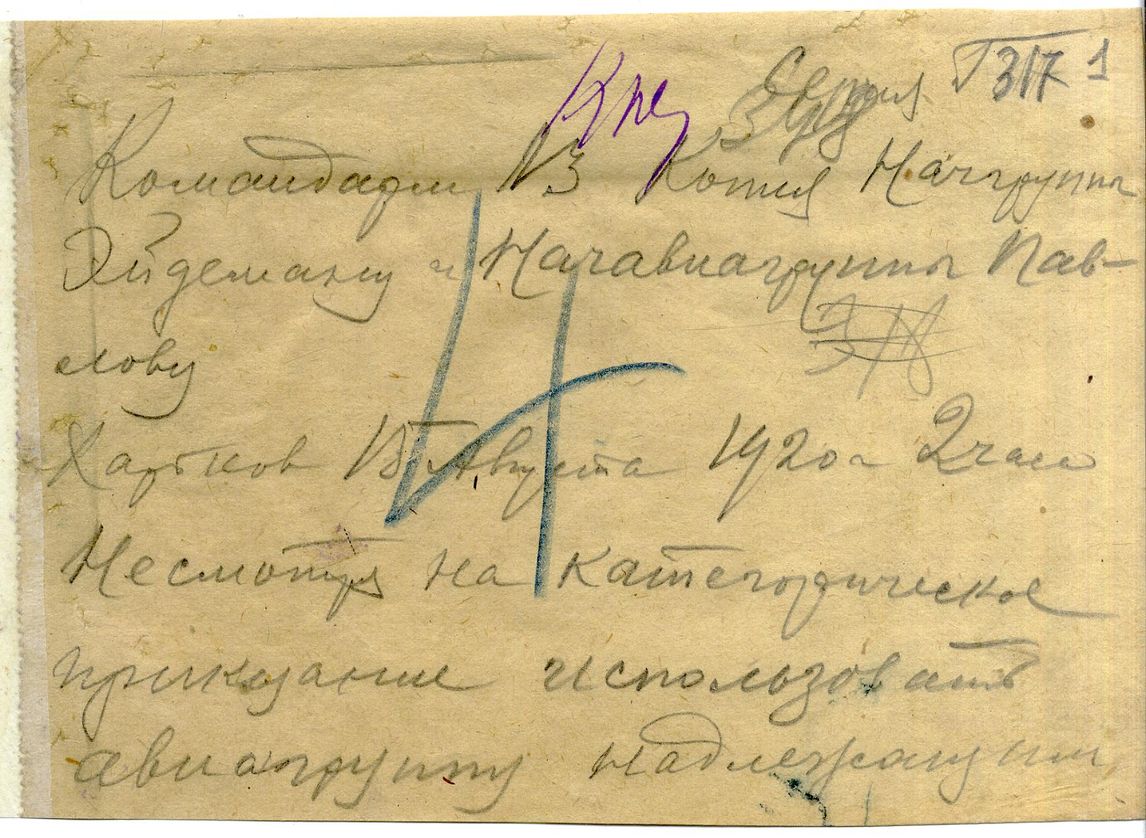 Г317 1
Командарм 13 Копия Начгруппы
Эйдеману и Начавиагруппы Пав-
лову
Харьков 15 Августа 1920 г 2 часа
Несмотря на категорическое
приказание использовать
авиагруппу надлежащим